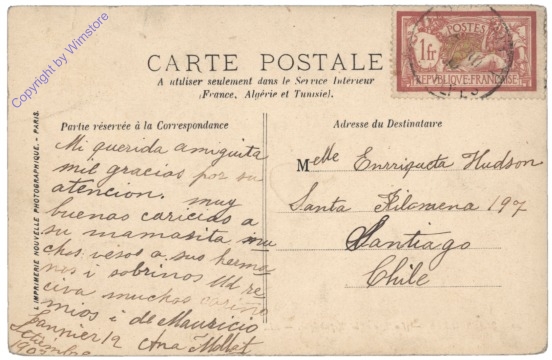 Copyright by Wimstore
CARTE POSTALE
A utiliser seulement dans le Service Intérieur
(France, Algérie et Tunisie).
POSTES
1fr
REPUBLIQUE FRANÇAISE
Partie réservée à la Correspondance
Mi querida amiguita
mil gracias por su
atencion. muy
buenas caricias a
su mamasita mu
chos vesos a sus herma
nos i sobrinos Ud re
civa muchos cariño
mios i de Mauricio
Ana Mollet
Setiembre
Adresse du Destinataire
Melle Enrriqueta Hudson
Santa Filomena 197
Santiago
Chile
L'IMPRIMERIE NOUVELLE PHOTOGRAPHIQUE. - PARIS.